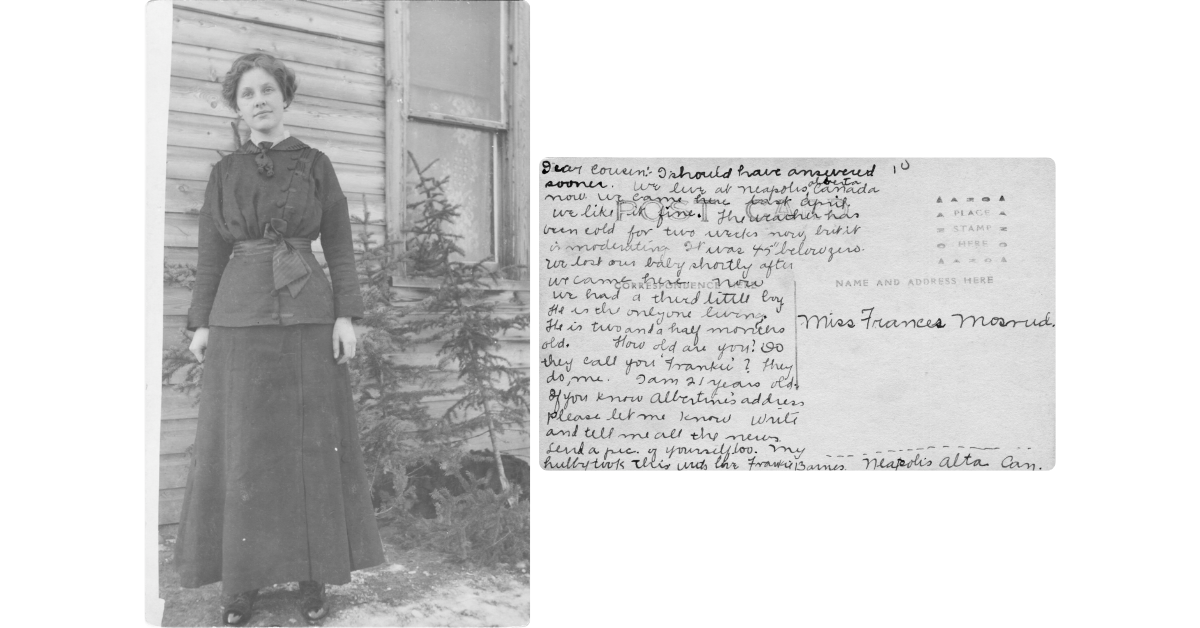 Dear Cousin:- I should have answered
sooner. We live at Neapolis Alberta Canada
now we came here last April,
we like it fine. The weather has
been cold for two weeks now, but it
is moderating It was 45° below zero.
We lost our baby shortly after
we came here. Now
we had a third little boy
He is the only one living.
He is two and a half months
old. How old are you? Do
they call you 'Frankie'? They
do, me. I am 21 years old.
If you know Albertine's address
please let me know write
and tell me all the news
Send a pic. of yourself too. My
hubby took this Frankie Barnes Neapolis Alta Can.
10
POST CA
CORRESPONDENCE HERE
AZO
PLACE
STAMP
HERE
AZO
NAME AND ADDRESS HERE
Miss Frances Mosrud.